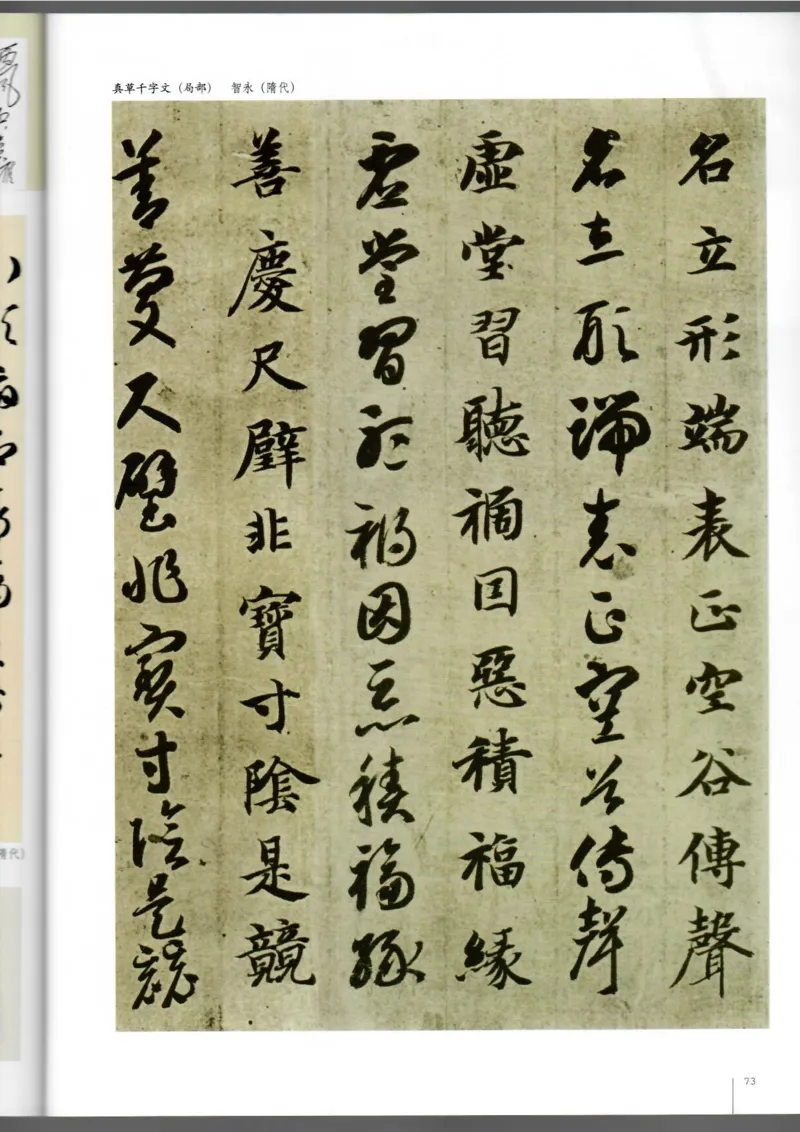 真草千字文（局部） 智永（隋代）
名立形端表正空谷傳聲
名立形端表正空谷傳聲
虛堂習聽禍因惡積福緣
虛堂習聽禍因惡積福緣
善慶尺璧非寶寸陰是競
善慶尺璧非寶寸陰是競
隋代）
73